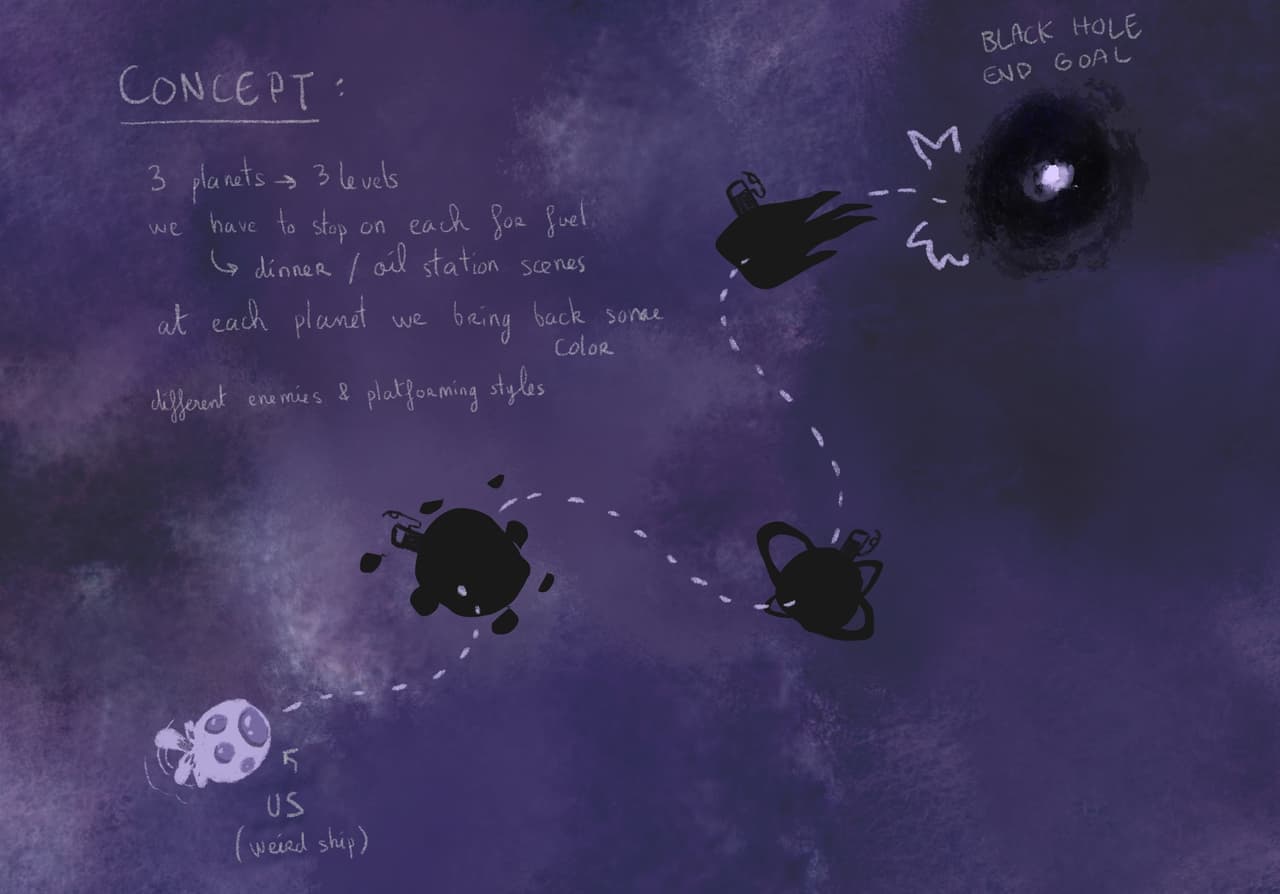 BLACK HOLE
END GOAL
CONCEPT:
3 planets → 3 levels
we have to stop on each for fuel
↳ dinner / oil station scenes
at each planet we bring back some
color
different enemies & platforming styles
US
(weird ship)